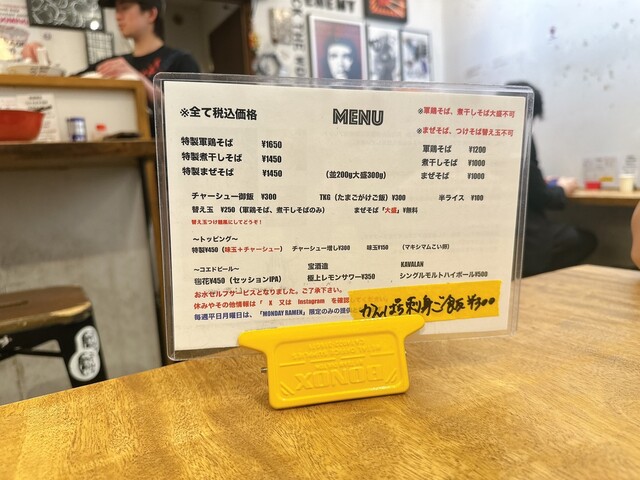 ENEMY
※全て税込価格
MENU
※軍鶏そば、煮干しそば大盛不可
※まぜそば、つけそば替え玉不可
特製軍鶏そば ¥1650
軍鶏そば ¥1200
特製煮干しそば ¥1450
煮干しそば ¥1000
特製まぜそば ¥1450 (並200g大盛300g)
まぜそば ¥1000
チャーシュー御飯 ¥300 TKG(たまごがけご飯)¥300 半ライス ¥100
替え玉 ¥250(軍鶏そば、煮干しそばのみ) まぜそば「大盛」¥無料
替え玉つけ麺風にしてどうぞ!
〜トッピング〜
特製¥450(味玉+チャーシュー) チャーシュー増し¥300 味玉¥150 (マキシマムこい卵)
〜コエドビール〜 宝酒造 KAVALAN
毬花¥450(セッションIPA) 極上レモンサワー¥350 シングルモルトハイボール¥500
お水セルフサービスとなりました。ご了承下さい。
休みやその他情報は「 X 又は Instagram を確認
毎週平日月曜日は、「MONDAY RAMEN」限定のみの提供
かんぱち刺身ご飯 ¥300
BONOX